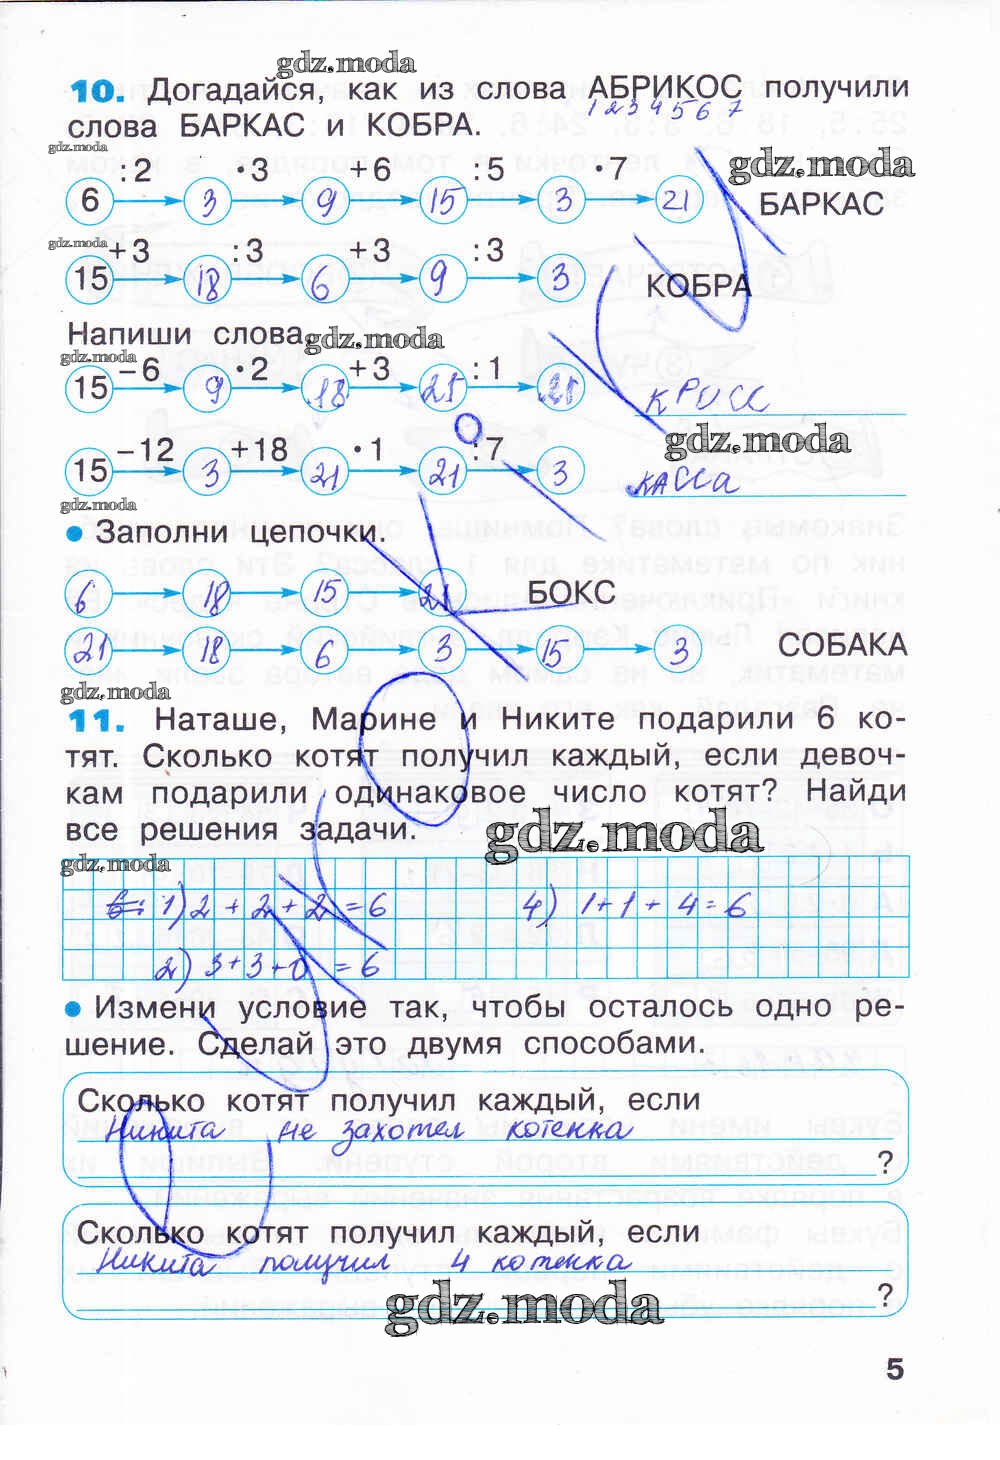 gdz.moda
10. Догадайся, как из слова АБРИКОС получили
1 2 3 4 5 6 7
слова БАРКАС и КОБРА.
gdz.moda
gdz.moda
:2 ·3 +6 :5 ·7
6 3 9 15 3 21 БАРКАС
gdz.moda
+3 :3 +3 :3
15 18 6 9 3 КОБРА
Напиши слова
gdz.moda
gdz.moda
−6 ·2 +3 :1
15 9 18 21 21 КРОСС
gdz.moda
−12 +18 ·1 :7
15 3 21 21 3 КАССА
gdz.moda
• Заполни цепочки.
6 18 15 21 БОКС
21 18 6 3 15 3 СОБАКА
gdz.moda
11. Наташе, Марине и Никите подарили 6 ко-
тят. Сколько котят получил каждый, если девоч-
кам подарили одинаковое число котят? Найди
все решения задачи.
gdz.moda
gdz.moda
6: 1) 2 + 2 + 2 = 6 4) 1 + 1 + 4 = 6
2) 3 + 3 + 0 = 6
• Измени условие так, чтобы осталось одно ре-
шение. Сделай это двумя способами.
Сколько котят получил каждый, если
Никита не захотел котенка
?
Сколько котят получил каждый, если
Никита получил 4 котенка
?
gdz.moda
5